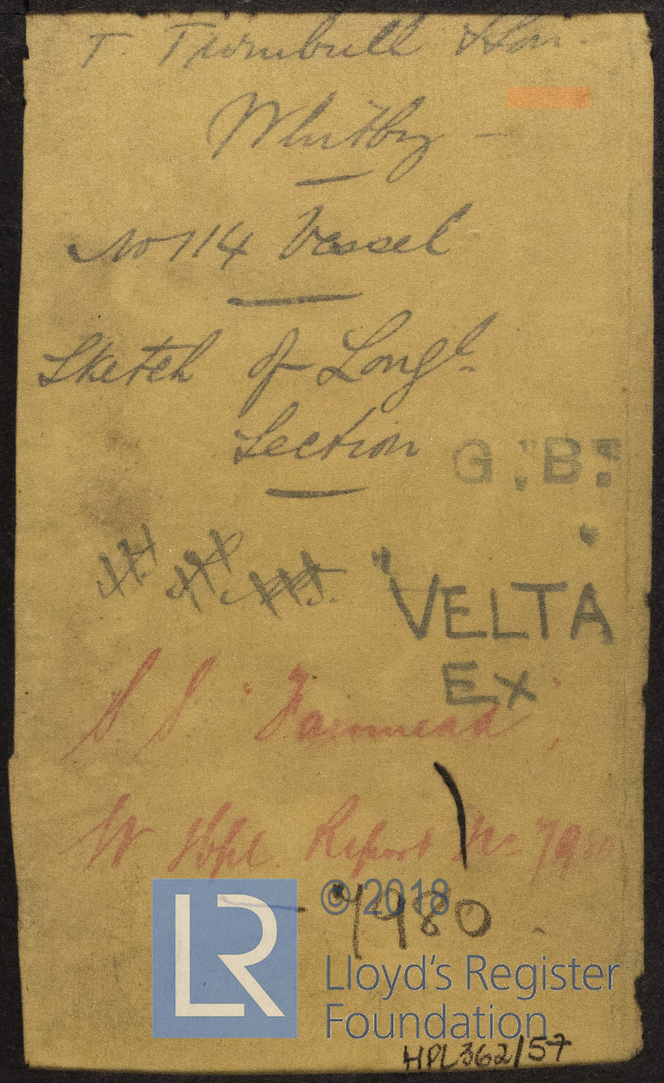 T Turnbull & Son
Whitby -
No 114 Vessel
Sketch of Longl.
Section
G. B.
"VELTA
Ex
S S "Fairmead"
W Hpl. Report No 7980
7980
© 2018
LR
Lloyd's Register
Foundation
HPL362/57